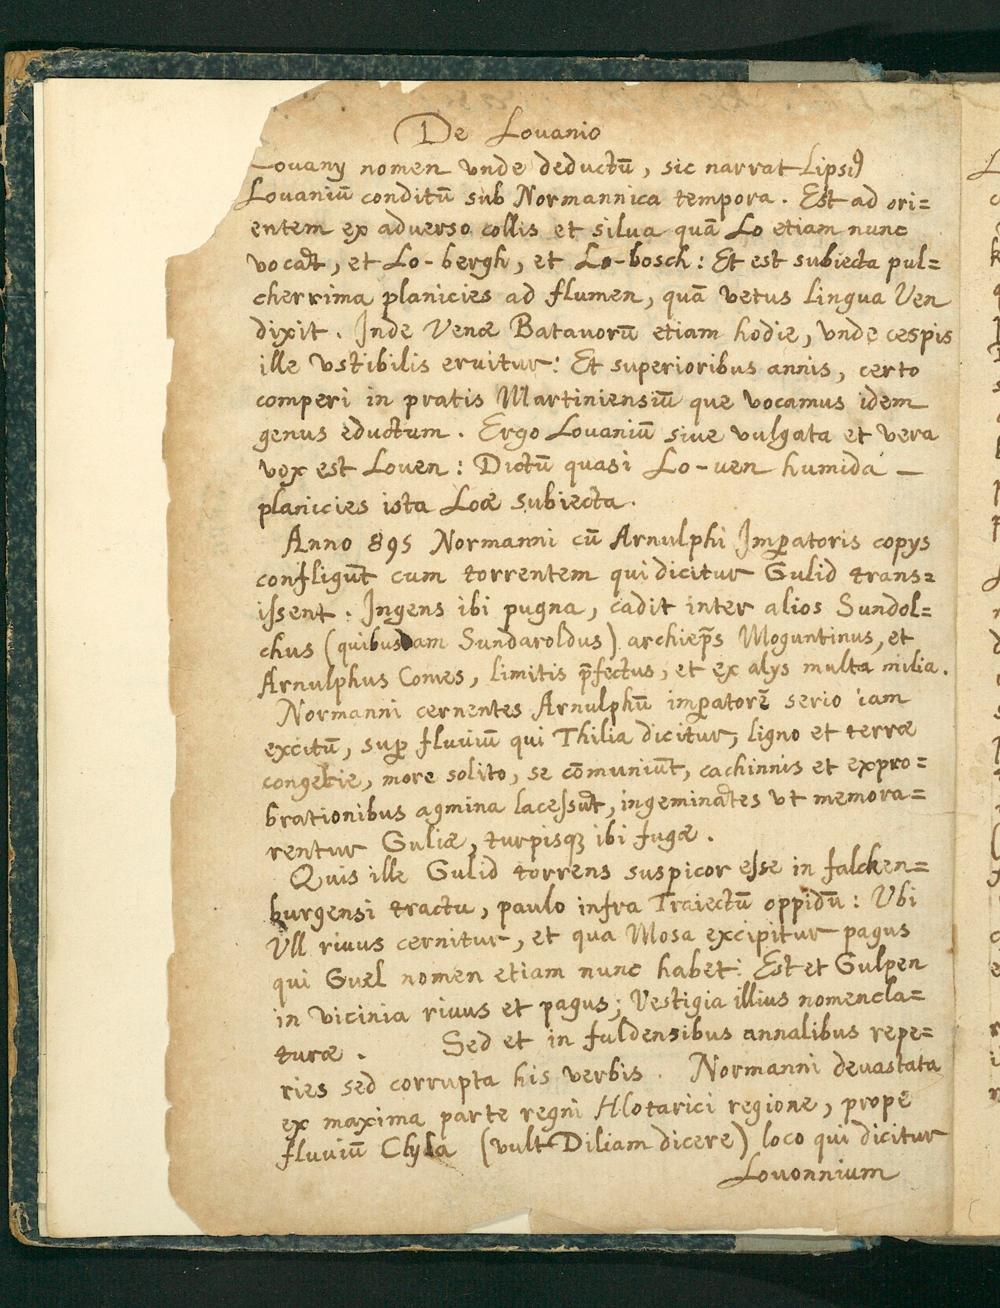 De Louanio
Louany nomen vnde deductū, sic narrat Lipsꝰ
Louaniū conditū sub Normannica tempora. Est ad ori=
entem ex aduerso collis et silua quā Lo etiam nunc
vocāt, et Lo-bergh, et Lo-bosch: Et est subiecta pul=
cherrima planicies ad flumen, quā vetus lingua Ven
dixit. Inde Venæ Batauorū etiam hodie, vnde cespis
ille vstibilis eruitur: Et superioribus annis, certo
comperi in pratis Martiniensiū que vocamus idem
genus eductum. Ergo Louaniū siue vulgata et vera
vox est Louen: Dictū quasi Lo-uen humida —
planicies ista Loæ subiecta.
Anno 895 Normanni cū Arnulphi Imꝑatoris copys
confligūt cum torrentem qui dicitur Gulid trans=
issent. Ingens ibi pugna, cadit inter alios Sundol=
chus (quibusdam Sundaroldus) archiep̄s Moguntinus, et
Arnulphus Comes, limitis p̄fectus, et ex alys multa milia.
Normanni cernentes Arnulphū imꝑatorē serio iam
excitū, suꝑ fluuiū qui Thilia dicitur, ligno et terræ
congerie, more solito, se cōmuniūt, cachinnis et expro=
brationibus agmina lacessūt, ingeminātes vt memora=
rentur Guliæ, turpisqꝫ ibi fugæ.
Quis ille Gulid torrens suspicor esse in falcken=
burgensi tractu, paulo infra Traiectū oppidū: Vbi
Vll riuus cernitur, et qua Mosa excipitur pagus
qui Guel nomen etiam nunc habet: Est et Gulpen
in vicinia riuus et pagus; Vestigia illius nomencla=
turæ. Sed et in fuldensibus annalibus repe=
ries sed corrupta his verbis. Normanni deuastata
ex maxima parte regni Hlotarici regione, prope
fluuiū Clyla (vult Diliam dicere) loco qui dicitur
Louonnium